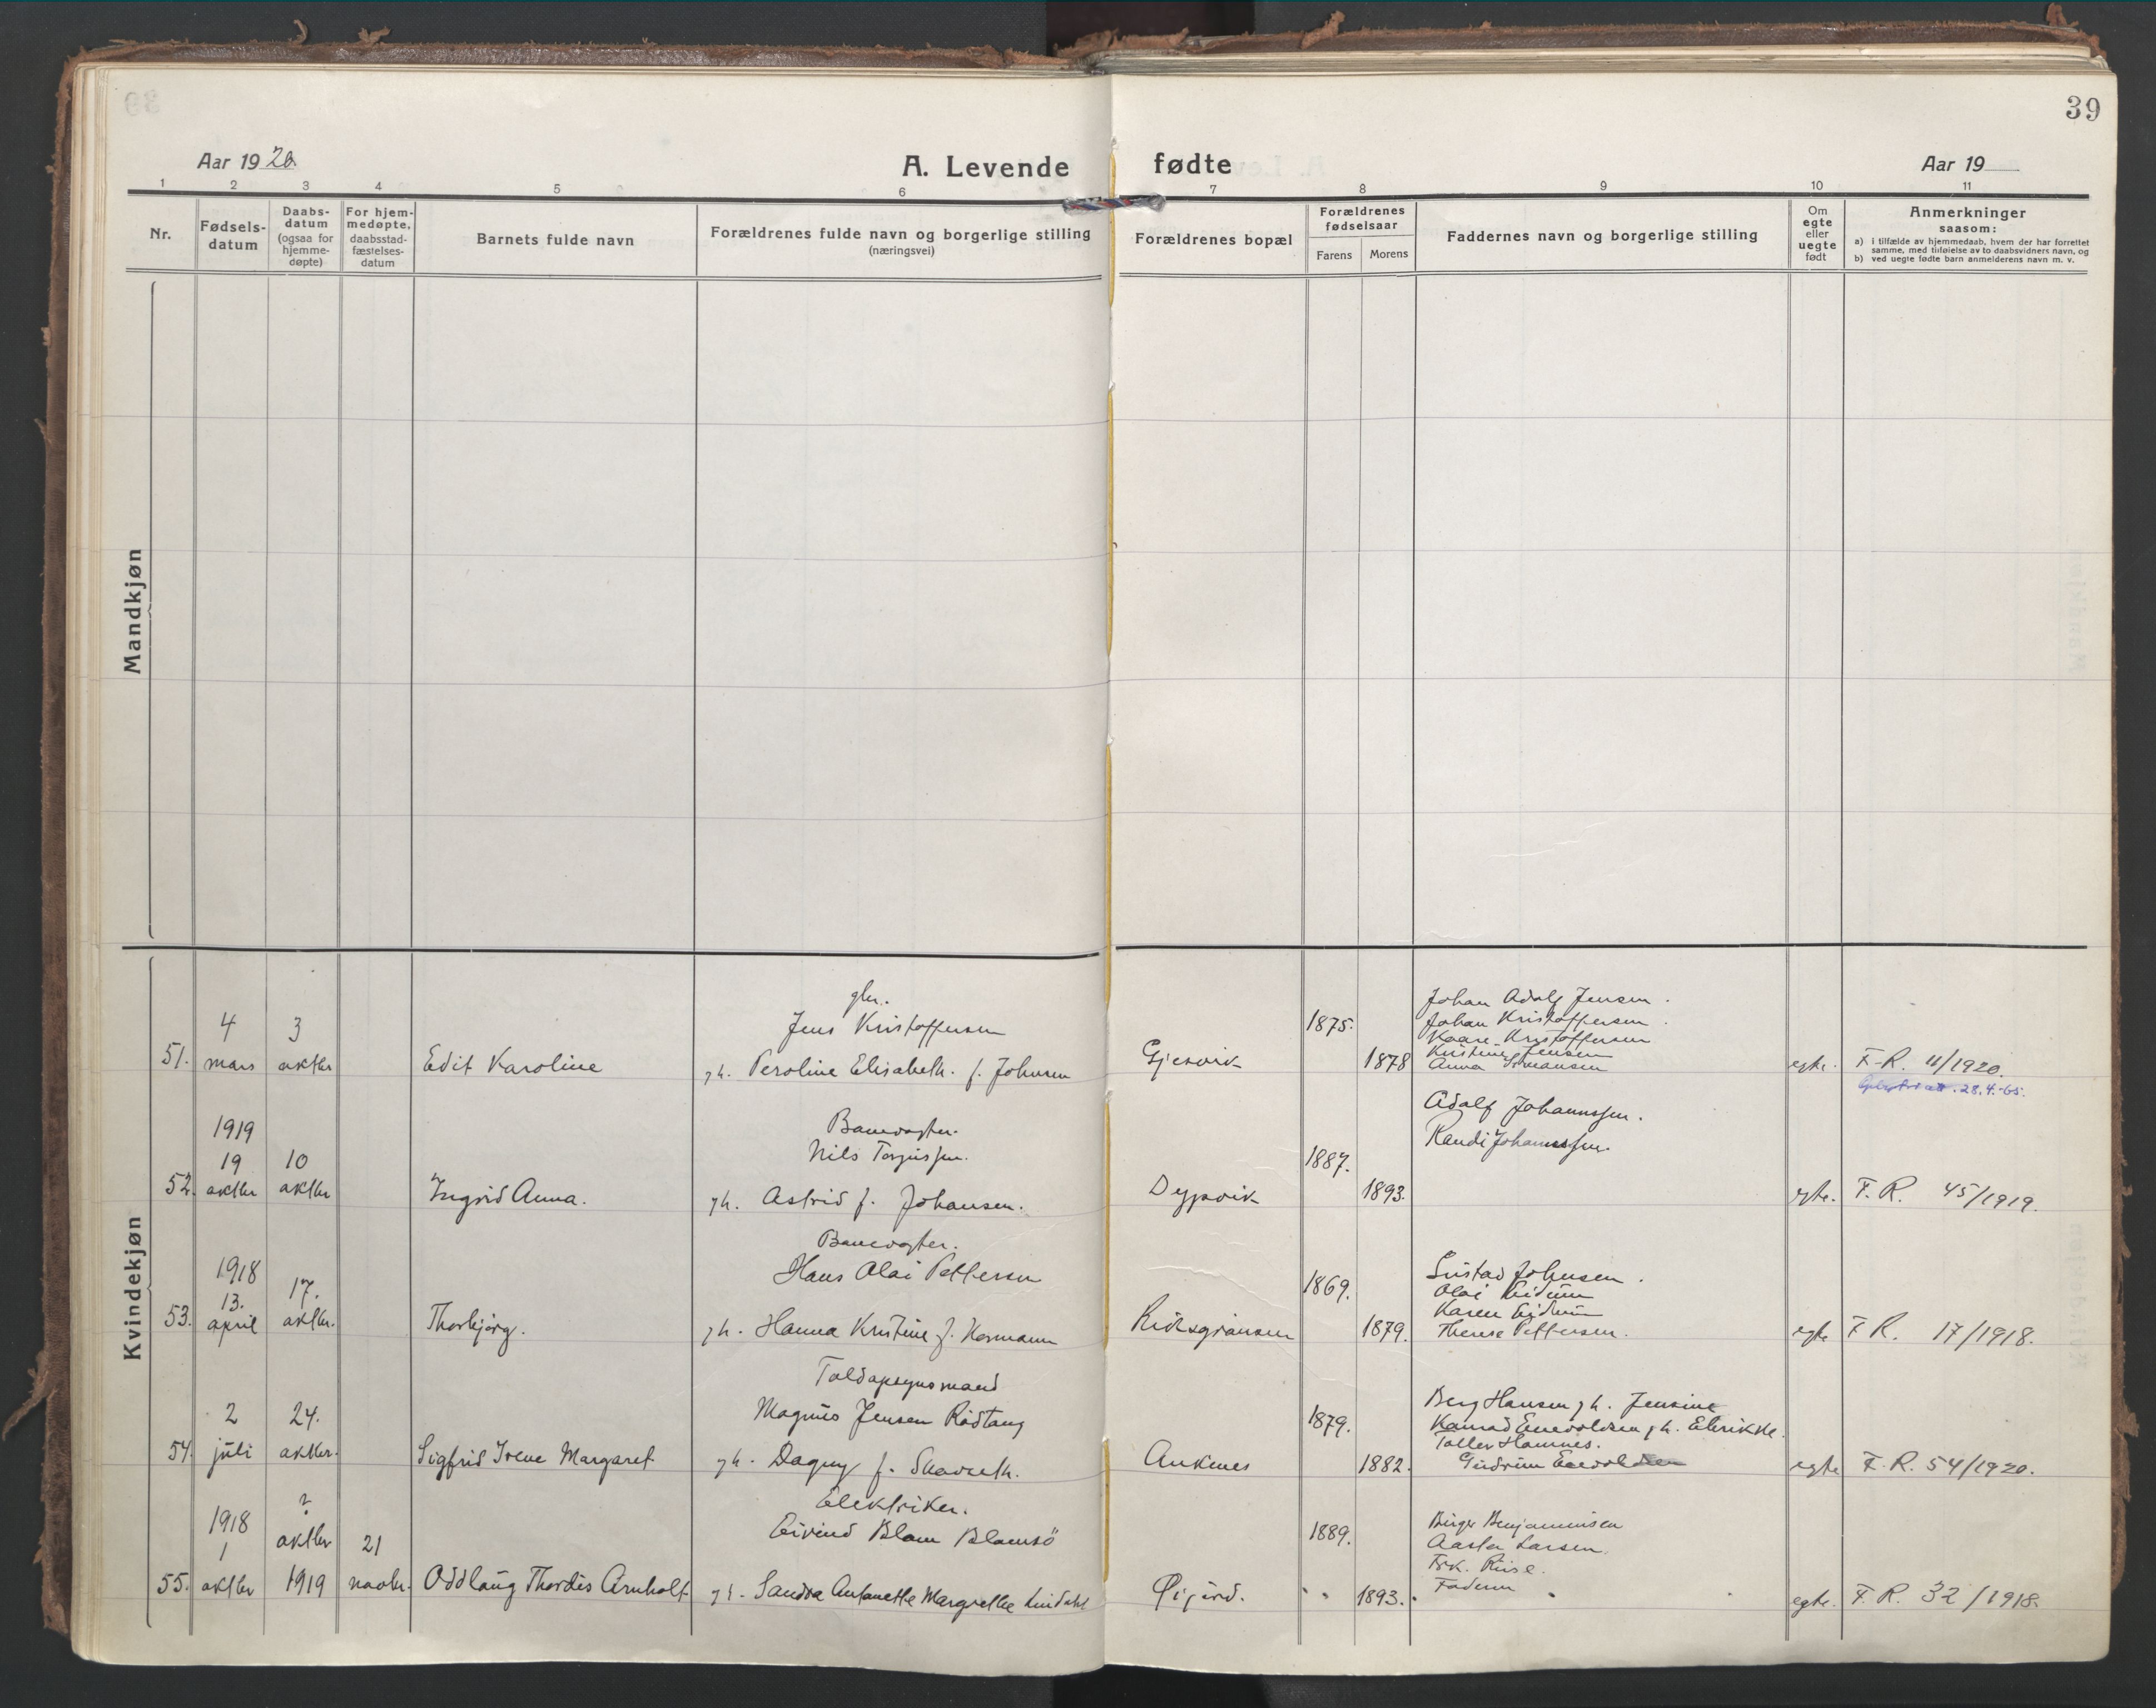 39
Aar 1920.
A. Levende fødte
Aar 19
1 2 3 4 5 6 7 8 9 10 11
Nr.
Fødsels-
datum
Daabs-
datum
(ogsaa for
hjemme-
døpte)
For hjem-
medøpte,
daabsstad-
fæstelses-
datum
Barnets fulde navn
Forældrenes fulde navn og borgerlige stilling
(næringsvei)
Forældrenes bopæl
Forældrenes
fødselsaar
Farens Morens
Faddernes navn og borgerlige stilling
Om
egte
eller
uegte
født
Anmerkninger
saasom:
a) i tilfælde av hjemmedaab, hvem der har forrettet
samme, med tilføielse av to daabsvidners navn, og
b) ved uegte fødte barn anmelderens navn m. v.
Mandkjøn
Kvindekjøn
51.
4
mars
3
oktbr
Edit Karoline
gbr.
Jens Kristoffersen
gh. Peroline Elisabeth. f. Johnsen
Gjesvik
1875.
1878
Johan Adolf Jensen.
Johan Kristoffersen.
Kaare Kristoffersen
Kristine Jensen
Anna
egte.
F.R. 11/1920.
28.4.-65.
52.
1919
19
oktbr
10
oktbr
Ingrid Anna.
Banevogter.
Nils Torgussen.
gh. Astrid f. Johansen.
Dypvik
1887.
1893.
Adolf Johannssen.
Randi Johannssen.
egte.
F.R. 45/1919.
53.
1918
13.
april
17.
oktbr.
Thorbjørg.
Banevogter.
Hans Olai Pettersen
gh. Hanna Kristine f. Hermann
Riksgränsen
1869.
1879.
Johnsen.
Olai
Karen
Therese Pettersen.
egte
F R. 17/1918.
54.
2
juli
24.
oktbr.
Sigfrid Irene Margaret
Toldopsynsmand
Magnus Jensen Rødtang
gh. Dagny f.
Ankenes
1879.
1882.
Berg Hansen gh. Jensine
Konrad Enevoldsen gh. Elerikke.
Toller Hamnes.
Gudrun Enevoldsen
egte
F.R. 54/1920.
55.
1918
1
oktbr
?
oktbr
1919
21
novbr.
Oddlaug Thordis Arnholt
Elektriker.
Eivind Blom Blomsö
gh. Sandra Antonette Margrethe Lindahl
Øijord.
1889.
1893.
Birger Benjaminsen
Aasta Larsen.
Frk. Riise.
Faderen
egte.
F.R. 32/1918.